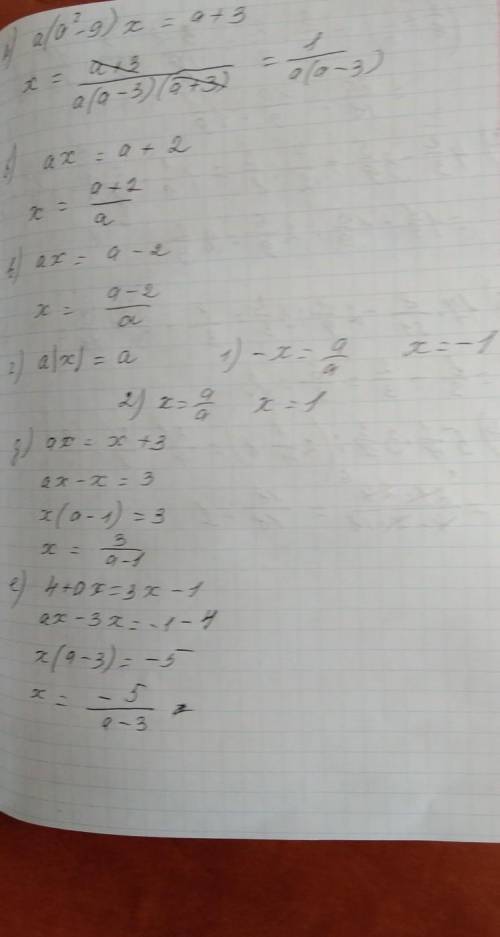 a(a²-9)x = a+3
x = (a+3)/(a(a-3)(a+3)) = 1/(a(a-3))
б) ax = a+2
x = (a+2)/a
в) ax = a-2
x = (a-2)/a
г) a|x| = a 1) -x = a/a x = -1
2) x = a/a x = 1
д) ax = x+3
ax-x = 3
x(a-1) = 3
x = 3/(a-1)
е) 4+ax=3x-1
ax-3x=-1-4
x(a-3) = -5
x = -5/(a-3)